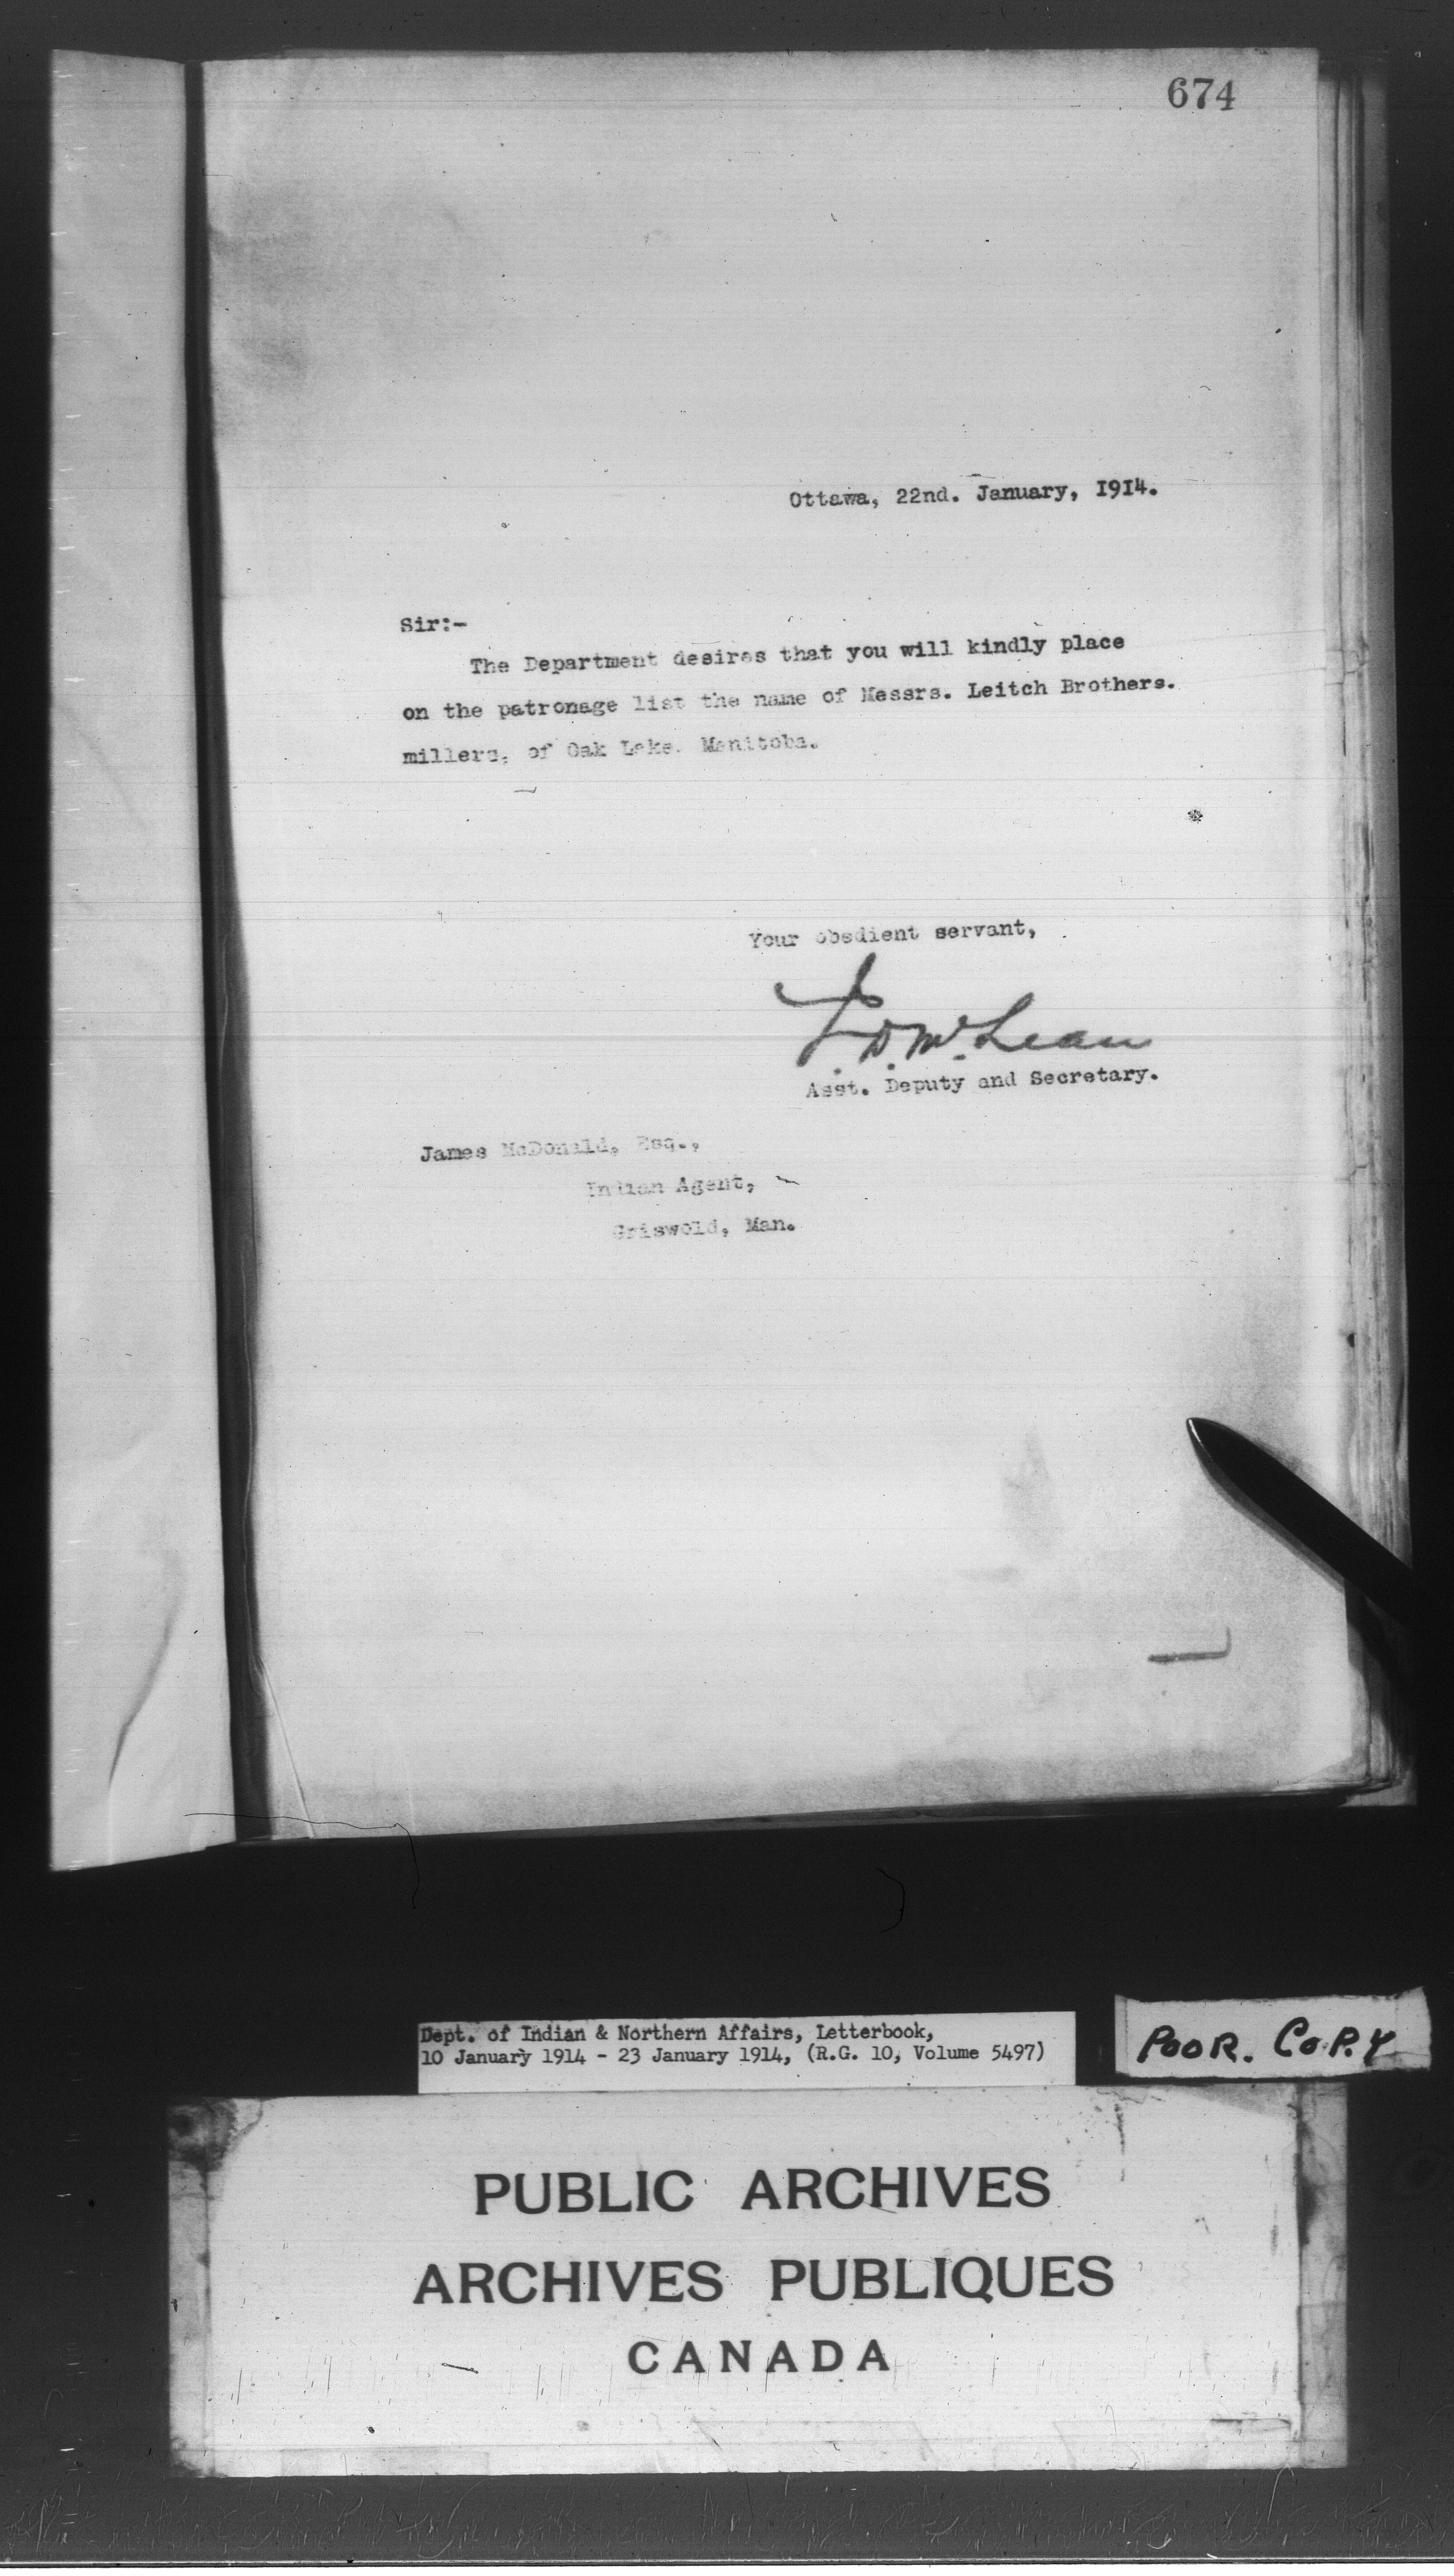 674
Ottawa, 22nd. January, 1914.
Sir:-
The Department desires that you will kindly place
on the patronage list the name of Messrs. Leitch Brothers.
millers, of Oak Lake. Manitoba.
Your obedient servant,
J. D. McLean
Asst. Deputy and Secretary.
James McDonald, Esq.,
Indian Agent,
Griswold, Man.
Dept. of Indian & Northern Affairs, Letterbook,
10 January 1914 - 23 January 1914, (R.G. 10, Volume 5497)
POOR. COPY
PUBLIC ARCHIVES
ARCHIVES PUBLIQUES
CANADA